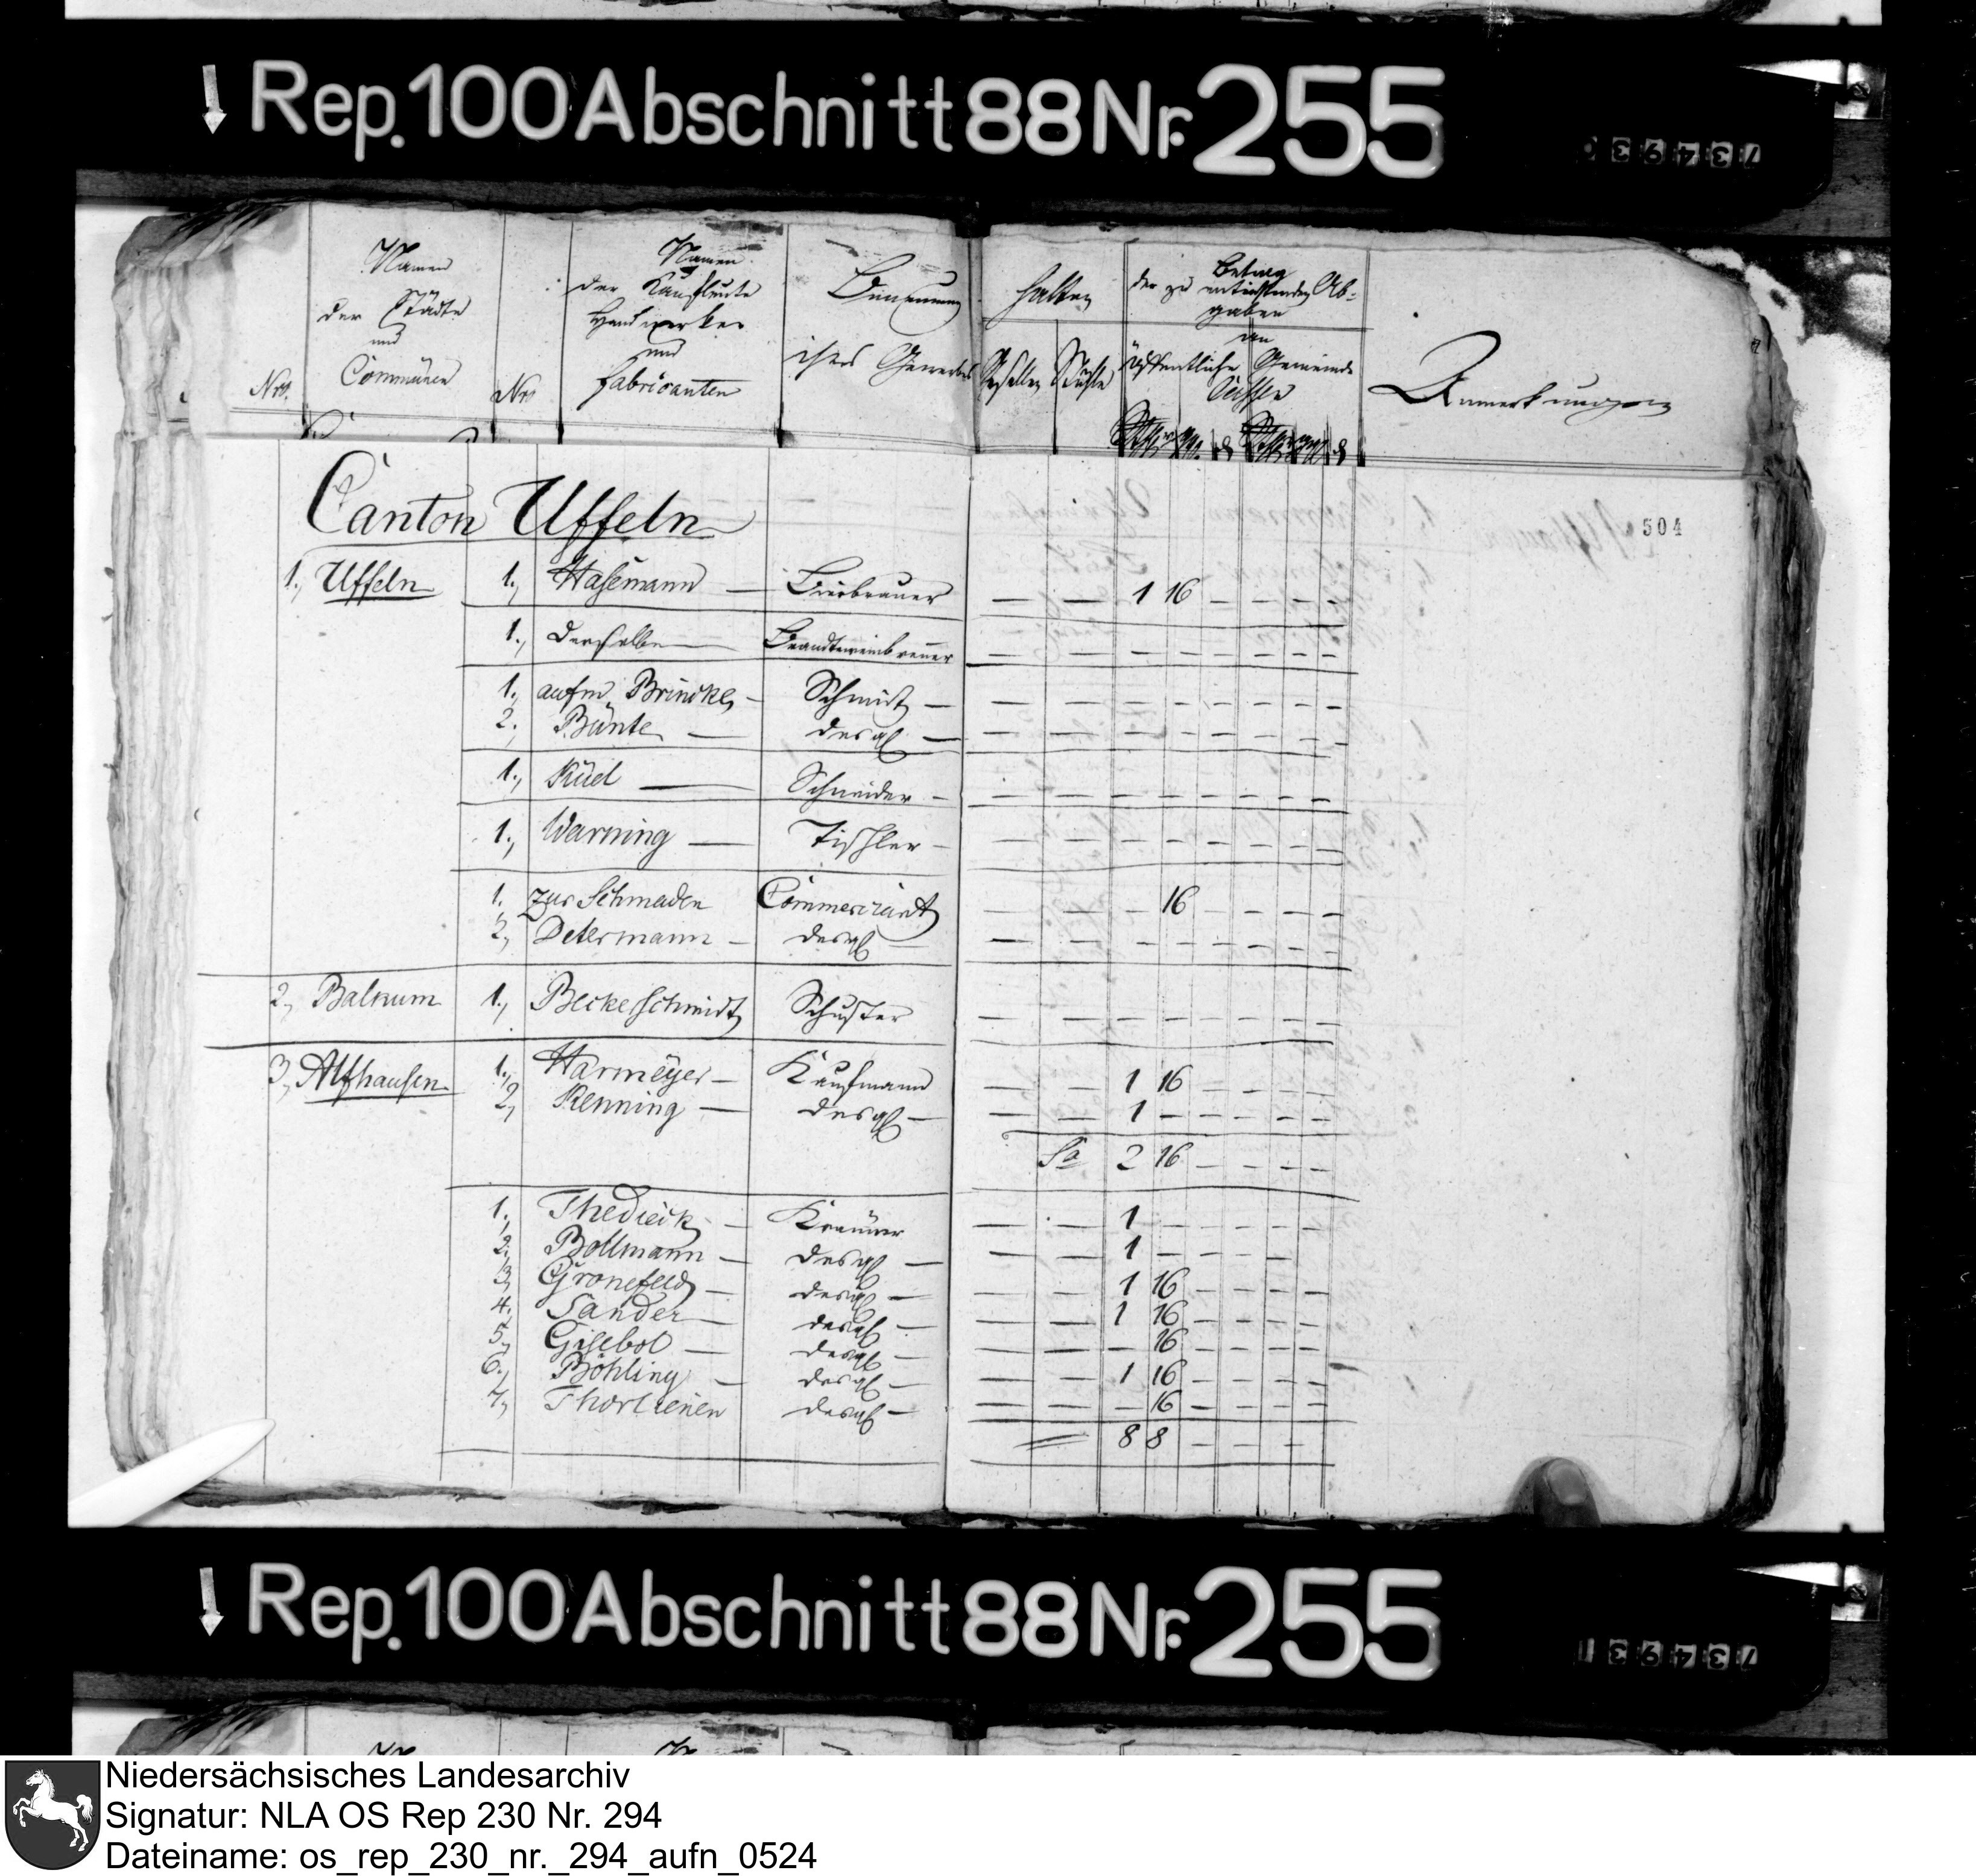 Rep. 100 Abschnitt 88 Nr. 255
Nro.
Namen
der Städte
und
Communen
Nro
Namen
der Kaufleute
Handwerker
und
Fabricanten
Benennung
ihres Gewerbes
halten
Gesellen
Stühle
Betrag
der zu entrichtenden Ab-
gaben
an
öffentliche Gemeinde
Cassen
Anmerkungen
504
Canton Uffeln
1., Uffeln 1., Hasemann — Bierbrauer — — 1 16 — — — —
1., Derselbe — Brandteweinbrenner — — — — — — — —
1., aufm Brincke, — Schmidt — — — — — — — — —
2., Bünte — desgl — — — — — — — — —
1., Küel — Schneider — — — — — — — — —
1., Warning — Tischler — — — — — — — — —
1. zur Schmaden Commerciant — — — 16 — — — —
2, Determann — desgl — — — — — — — — —
2, Balkum 1., Beckerschmidt Schuster — — — — — — — —
3, Alfhausen 1., Harmeyer — Kaufmann — — 1 16 — — — —
2, Renning — desgl — — — 1 — — — — —
Sa 2 16 — — — —
1., Thedieck — Kramer — — 1 — — — — —
2., Bollmann — desgl — — — 1 — — — —
3, Gronefeld — desgl — — — 1 16 — — — —
4., Sander — desgl — — — 1 16 — — — —
5, Gisebol — desgl — — — — 16 — — — —
6., Böhling — desgl — — — 1 16 — — — —
7, desgl — — — — 16 — — — —
8 8 — — —
Rep. 100 Abschnitt 88 Nr. 255
Niedersächsisches Landesarchiv
Signatur: NLA OS Rep 230 Nr. 294
Dateiname: os_rep_230_nr._294_aufn_0524